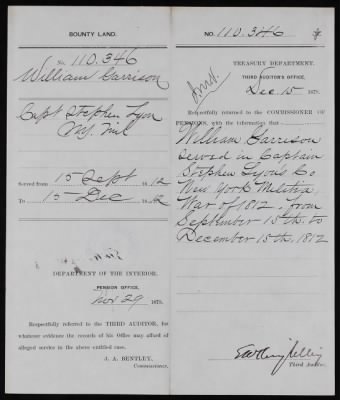 BOUNTY LAND.
No. 110.346
William Garrison
Capt Stephen Lyon
NY. Mil
Served from 15 Sept 1812
To 15 Dec 1812
DEPARTMENT OF THE INTERIOR.
PENSION OFFICE,
Nov 29 1878.
Respectfully referred to the THIRD AUDITOR, for
whatever evidence the records of his Office may afford of
alleged service in the above entitled case.
J. A. BENTLEY,
Commissioner.
No. 110.346
TREASURY DEPARTMENT.
THIRD AUDITOR'S OFFICE,
Dec. 15 1878.
Respectfully returned to the COMMISSIONER OF
PENSIONS, with the information that
William Garrison
served in Captain
Stephen Lyon's Co
New York Militia
War of 1812. from
September 15th. to
December 15th. 1812
Third Auditor.